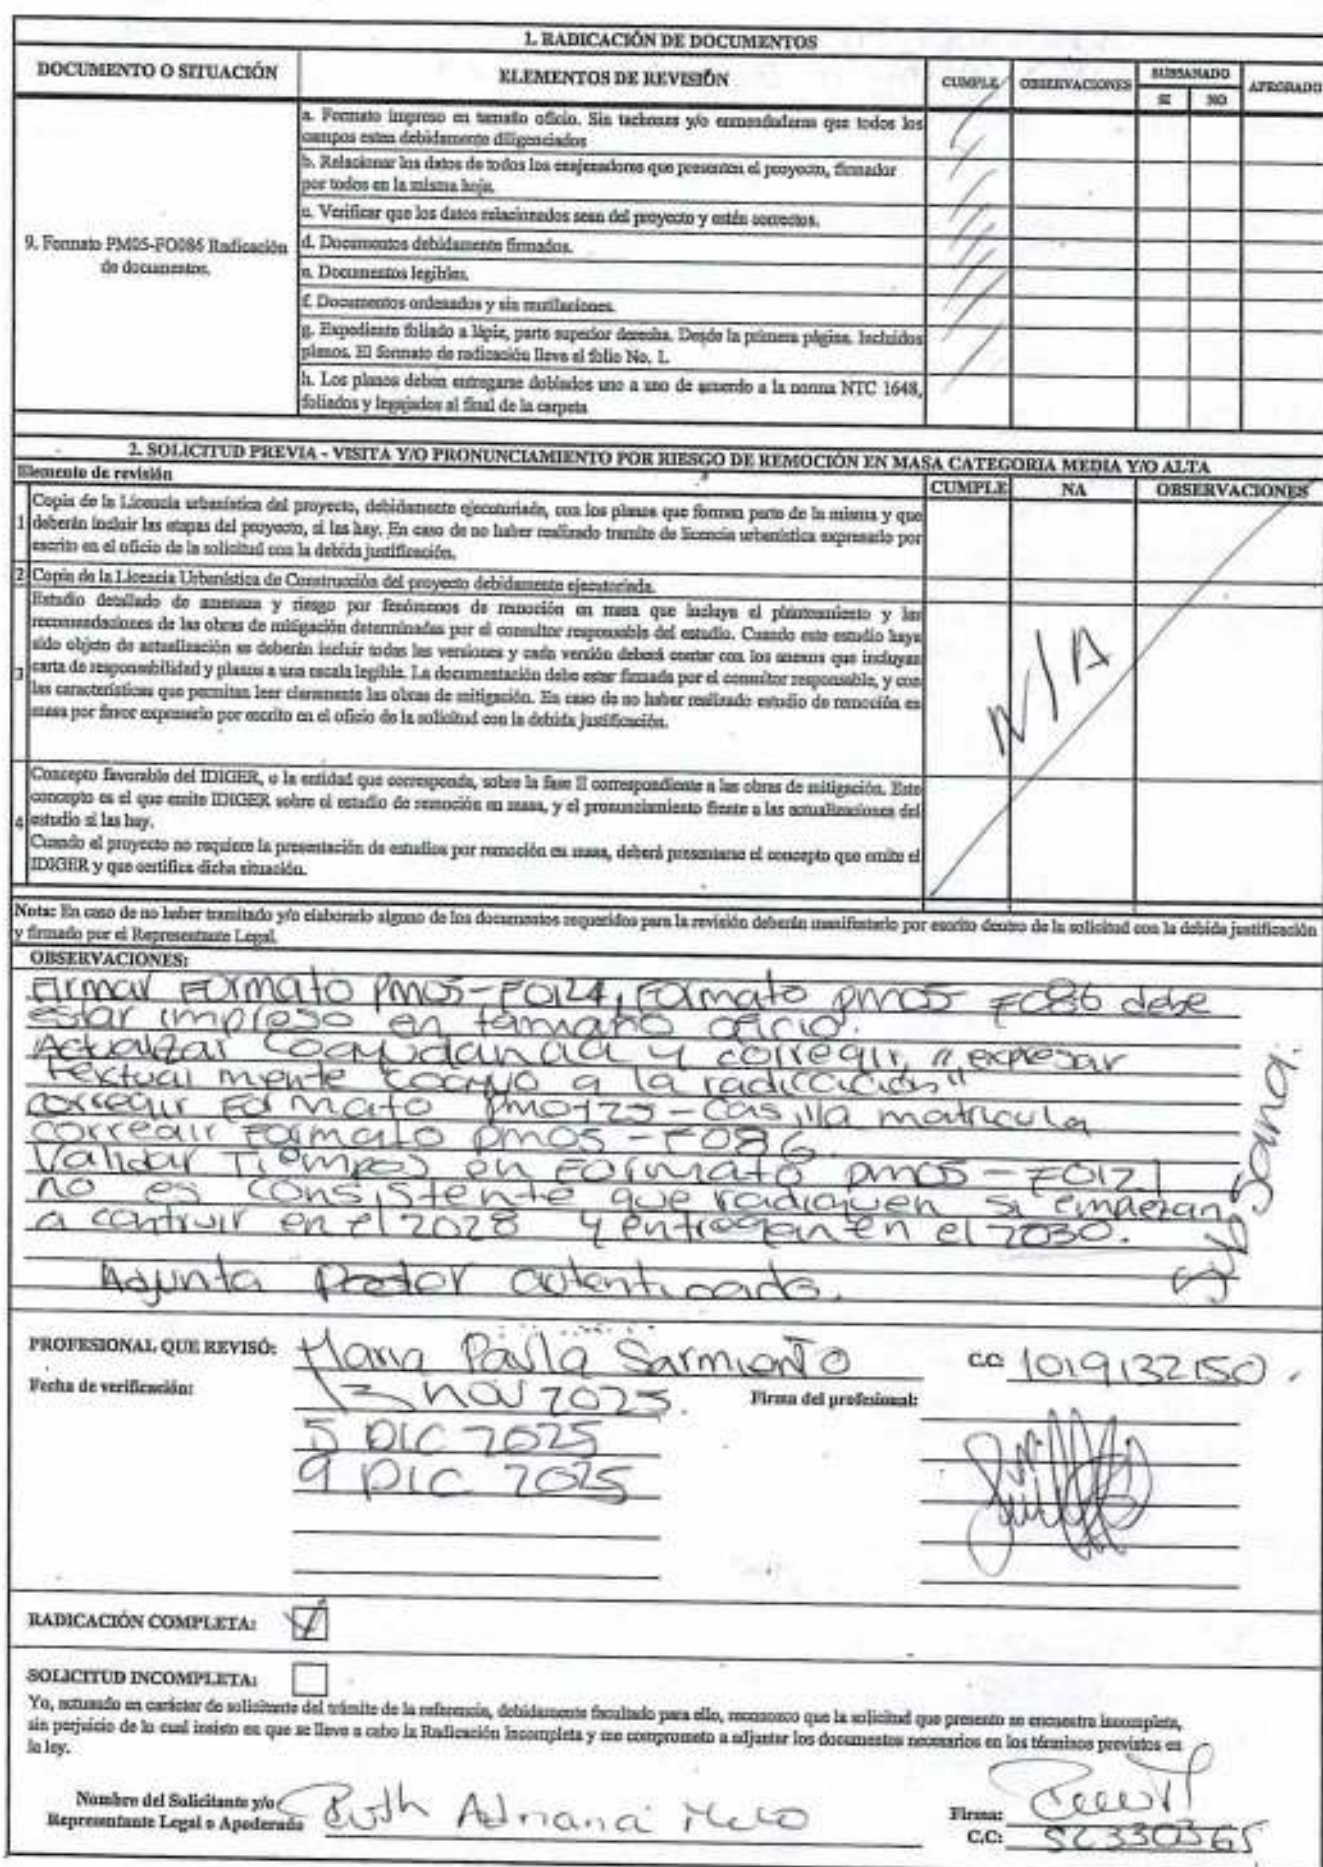 1. RADICACIÓN DE DOCUMENTOS
DOCUMENTO O SITUACIÓN
ELEMENTOS DE REVISIÓN
CUMPLE
OBSERVACIONES
SUBSANADO
SI
NO
APROBADO
9. Formato PM05-FO086 Radicación
de documentos.
a. Formato impreso en tamaño oficio. Sin tachones y/o enmendaduras que todos los
campos esten debidamente diligenciados
b. Relacionar los datos de todos los enajenadores que presenten el proyecto, firmador
por todos en la misma hoja.
c. Verificar que los datos relacionados sean del proyecto y estén correctos.
d. Documentos debidamente firmados.
e. Documentos legibles.
f. Documentos ordenados y sin mutilaciones.
g. Expediente foliado a lápiz, parte superior derecha. Desde la primera página. Incluidos
planos. El formato de radicación lleva el folio No. 1.
h. Los planos deben entregarse doblados uno a uno de acuerdo a la norma NTC 1648,
foliados y legajados al final de la carpeta
2. SOLICITUD PREVIA - VISITA Y/O PRONUNCIAMIENTO POR RIESGO DE REMOCIÓN EN MASA CATEGORIA MEDIA Y/O ALTA
Elemento de revisión
CUMPLE
NA
OBSERVACIONES
1 Copia de la Licencia urbanística del proyecto, debidamente ejecutoriada, con los planos que forman parte de la misma y que
deberán incluir las etapas del proyecto, si las hay. En caso de no haber realizado tramite de licencia urbanística expresarlo por
escrito en el oficio de la solicitud con la debida justificación.
2 Copia de la Licencia Urbanística de Construcción del proyecto debidamente ejecutoriada.
3 Estudio detallado de amenaza y riesgo por fenómenos de remoción en masa que incluya el planteamiento y las
recomendaciones de las obras de mitigación determinadas por el consultor responsable del estudio. Cuando este estudio haya
sido objeto de actualización se deberán incluir todas las versiones y cada versión deberá contar con los anexos que incluyan
carta de responsabilidad y planos a una escala legible. La documentación debe estar firmada por el consultor responsable, y con
las características que permitan leer claramente las obras de mitigación. En caso de no haber realizado estudio de remoción en
masa por favor expresarlo por escrito en el oficio de la solicitud con la debida justificación.
N/A
4 Concepto favorable del IDIGER, o la entidad que corresponda, sobre la fase II correspondiente a las obras de mitigación. Este
concepto es el que emite IDIGER sobre el estudio de remoción en masa, y el pronunciamiento frente a las actualizaciones del
estudio si las hay.
Cuando el proyecto no requiere la presentación de estudios por remoción en masa, deberá presentarse el concepto que emite el
IDIGER y que certifica dicha situación.
Nota: En caso de no haber tramitado y/o elaborado alguno de los documentos requeridos para la revisión deberán manifestarlo por escrito dentro de la solicitud con la debida justificación
y firmado por el Representante Legal.
OBSERVACIONES:
Firmar Formato PM05-FO124, Formato PM05 FO86 debe
estar impreso en tamaño oficio.
Actualizar Coayudancia y corregir, "expresar
textual mente coayuo a la radicación"
corregir Formato PM0125-Casilla matricula
corregir Formato PM05-FO86.
Validar Tiempos en Formato PM05-FO121
no es consistente que radiquen si empezan
a contruir en el 2028 y entregan en el 2030.
Adjunta Poder autenticado.
Subsana.
PROFESIONAL QUE REVISÓ: Maria Paula Sarmiento
C.C: 1019132150.
Fecha de verificación: 13 nov 2025.
Firma del profesional:
5 DIC 2025
9 DIC 2025
RADICACIÓN COMPLETA:
SOLICITUD INCOMPLETA:
Yo, actuando en carácter de solicitante del trámite de la referencia, debidamente facultado para ello, reconozco que la solicitud que presento se encuentra incompleta,
sin perjuicio de lo cual insisto en que se lleve a cabo la Radicación Incompleta y me comprometo a adjuntar los documentos necesarios en los términos previstos en
la ley.
Nombre del Solicitante y/o
Representante Legal o Apoderado
Ruth Adriana Melo
Firma:
C.C: 52330365